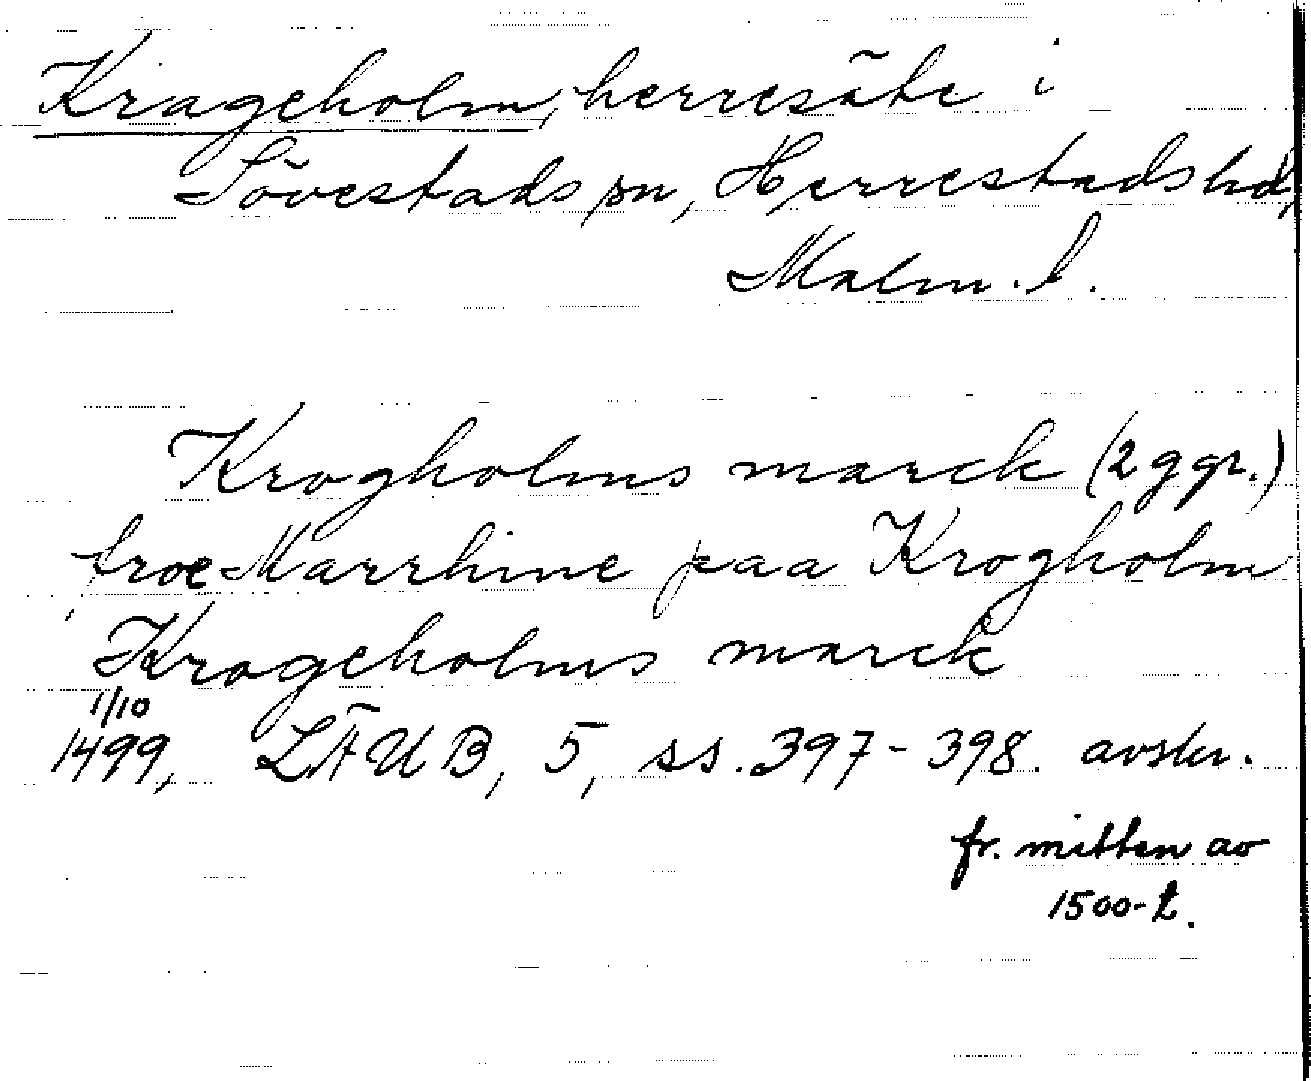 Krageholm, herresäte i
Sövestads sn, Herrestads hd,
Malm. l.
Krogholms marck (2 ggr.)
froe Marrhine paa Krogholm
Krogeholms marck
1/10
1499, LÄUB, 5, ss. 397-398. avskr.
fr. mitten av
1500-t.